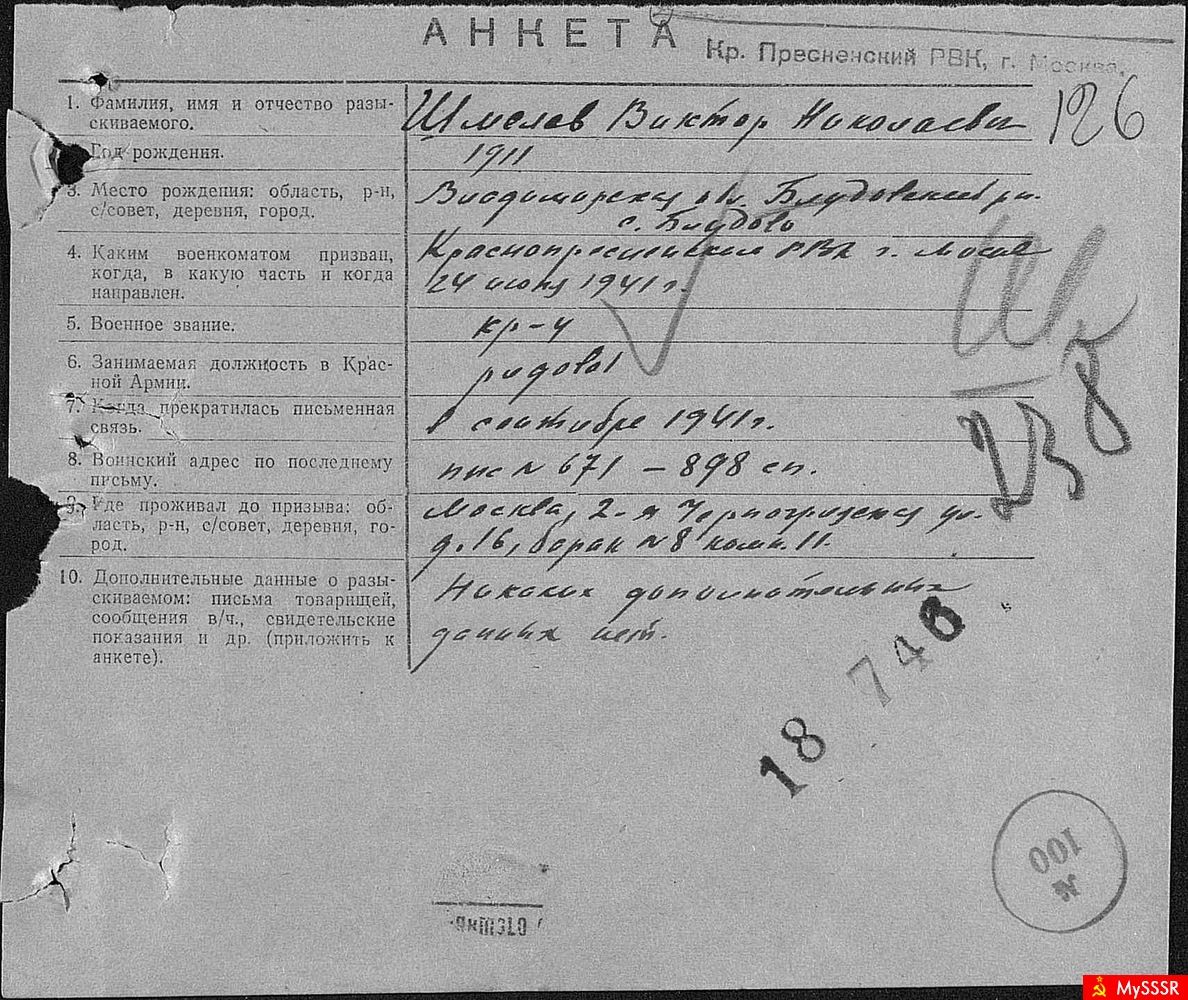 АНКЕТА
Кр. Пресненский РВК, г. Москва.
126
1. Фамилия, имя и отчество разы-
скиваемого.
Шмелев Виктор Николаевич
Год рождения.
1911
3. Место рождения: область, р-н,
с/совет, деревня, город.
обл. Блудовский р-н.
с. Блудово
4. Каким военкоматом призван,
когда, в какую часть и когда
направлен.
Краснопресненским РВК г. Москв
24 июня 1941 г.
5. Военное звание.
кр-ц
6. Занимаемая должность в Крас-
ной Армии.
рядовой
7. Когда прекратилась письменная
связь.
в сентябре 1941 г.
8. Воинский адрес по последнему
письму.
ппс № 671 – 898 сп.
9. Где проживал до призыва: об-
ласть, р-н, с/совет, деревня, го-
род.
Москва, 2-я Черногрязская ул.
д. 16, барак № 8 комн. 11.
10. Дополнительные данные о разы-
скиваемом: письма товарищей,
сообщения в/ч., свидетельские
показания и др. (приложить к
анкете).
Никаких дополнительных
данных нет.
238
18 746
№ 100
MySSSR